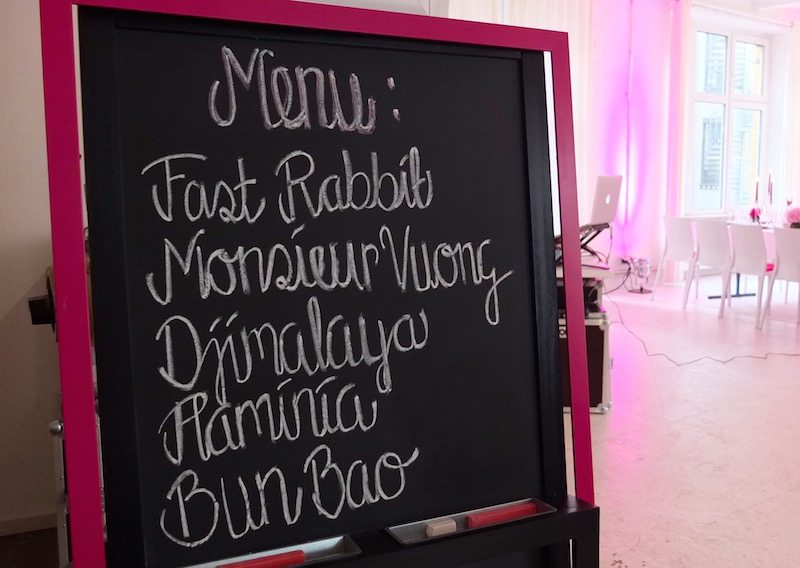 Menu:
Fast Rabbit
Monsieur Vuong
Djimalaya
Flaminia
Bun Bao